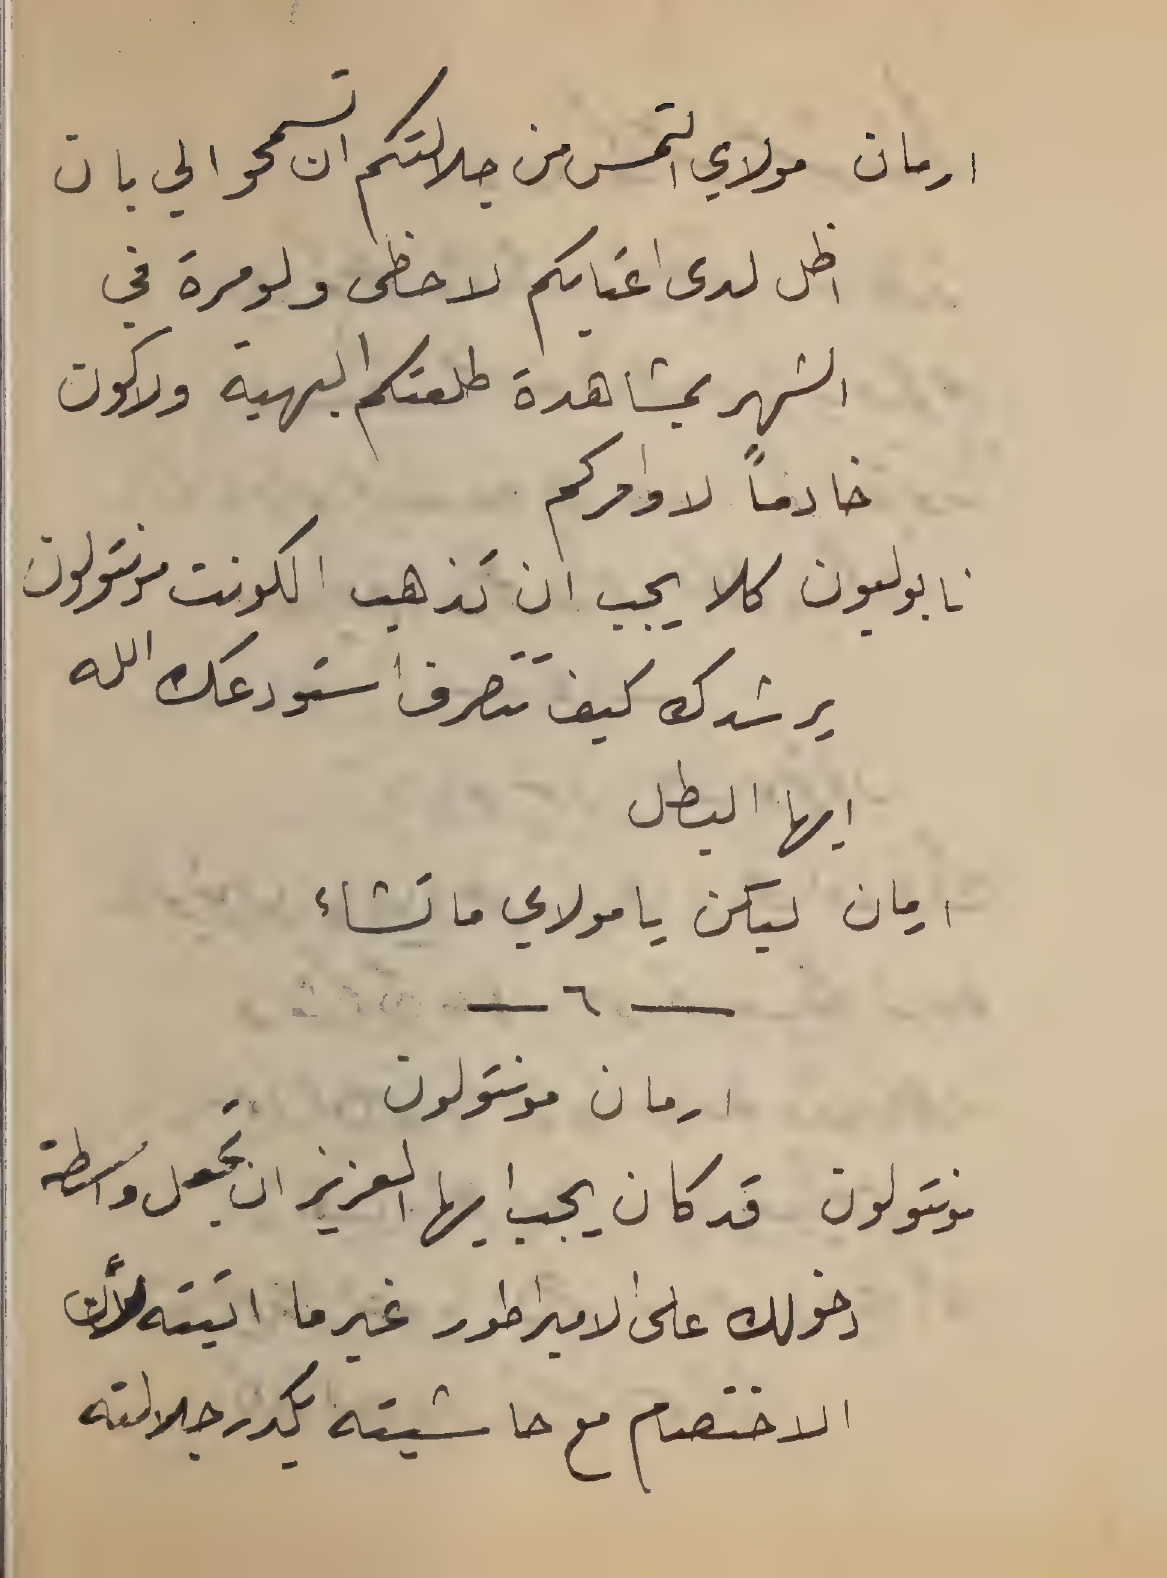 ارمان مولاي التمس من جلالتكم ان تسمحوا لي بان
اظل لدى اعتابكم لاحظى ولو مرة في
الشهر بمشاهدة طلعتكم البهية ولاكون
خادماً لاوامركم
نابوليون كلا يجب ان تذهب الكونت مونتولون
يرشدك كيف تتصرف استودعك الله
ايها البطل
ارمان ليكن يا مولاي ما تشاء
— ٦ —
ارمان مونتولون
مونتولون قد كان يجب ايها العزيز ان تجعل واسطة
دخولك على الامبراطور غير ما اتيته لأن
الاختصام مع حاشيته يكدر جلالته